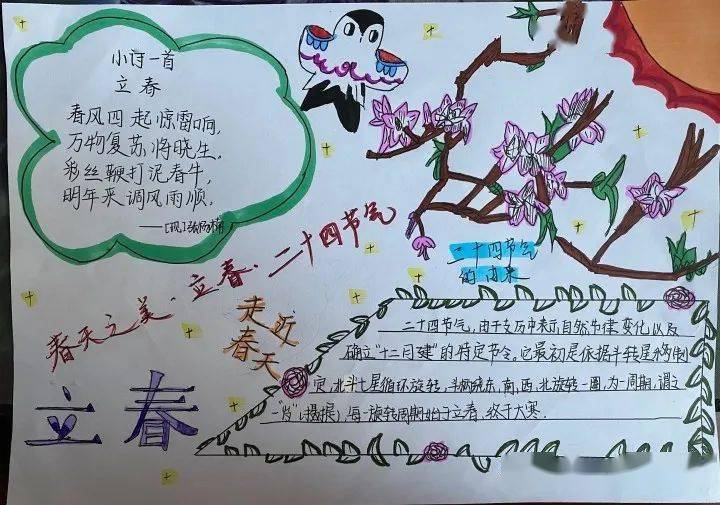 小诗一首
立春
春风四起惊雷响,
万物复苏将晓生,
彩丝鞭打泥春牛,
明年来调风雨顺.
春天之美·立春·二十四节气
走近
春天
立春
二十四节气
的由来
二十四节气,由于支历中表示自然节律变化以及
确立“十二月建”的特定节令。它最初是依据斗转星移制
定,北斗七星循环旋转,斗柄绕东,南,西,北旋转一圈,为一周期,谓之
一“岁”(摄提),每一旋转周期始于立春,终于大寒.